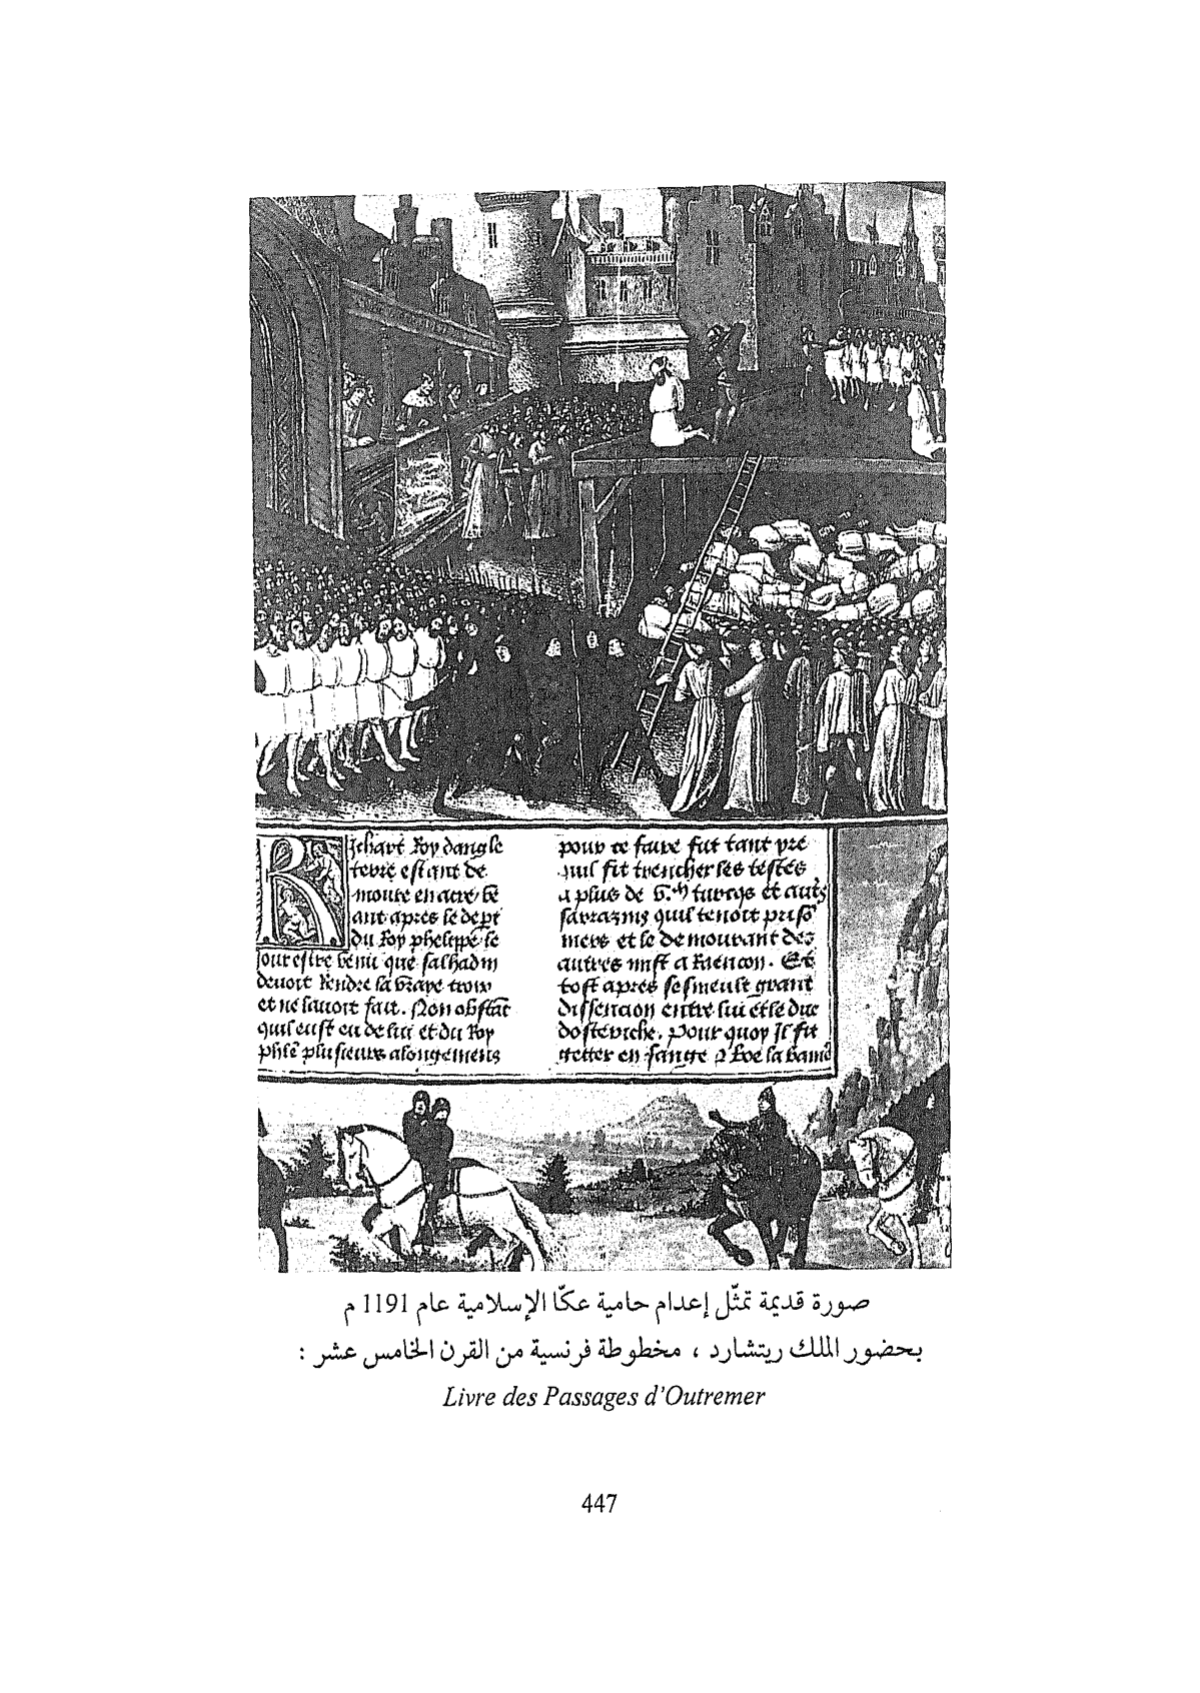 Richart Roy dangle
terre estant de
moure en acre, be
ant apres le dept
du Roy phelippe le
jour estre venu que salhadin
devoit Rendre la vraye croix
et ne lavoit fait. Non obstãt
quil eust eu de lui et du Roy
phle plusieurs alongemens
pour ce faire fut tant yre
quil fit trencher les testes
a plus de turcqs et autƺ
sarrazins quil tenoit priso
niers et le demourant des
autres mist a Raencon. Et
tost apres sesmeult grant
dissencion entre lui et le duc
dosteriche. Pour quoy Il fit
getter en fange la bani
صورة قديمة تمثّل إعدام حامية عكّا الإسلامية عام 1191 م
بحضور الملك ريتشارد ، مخطوطة فرنسية من القرن الخامس عشر :
Livre des Passages d'Outremer
447